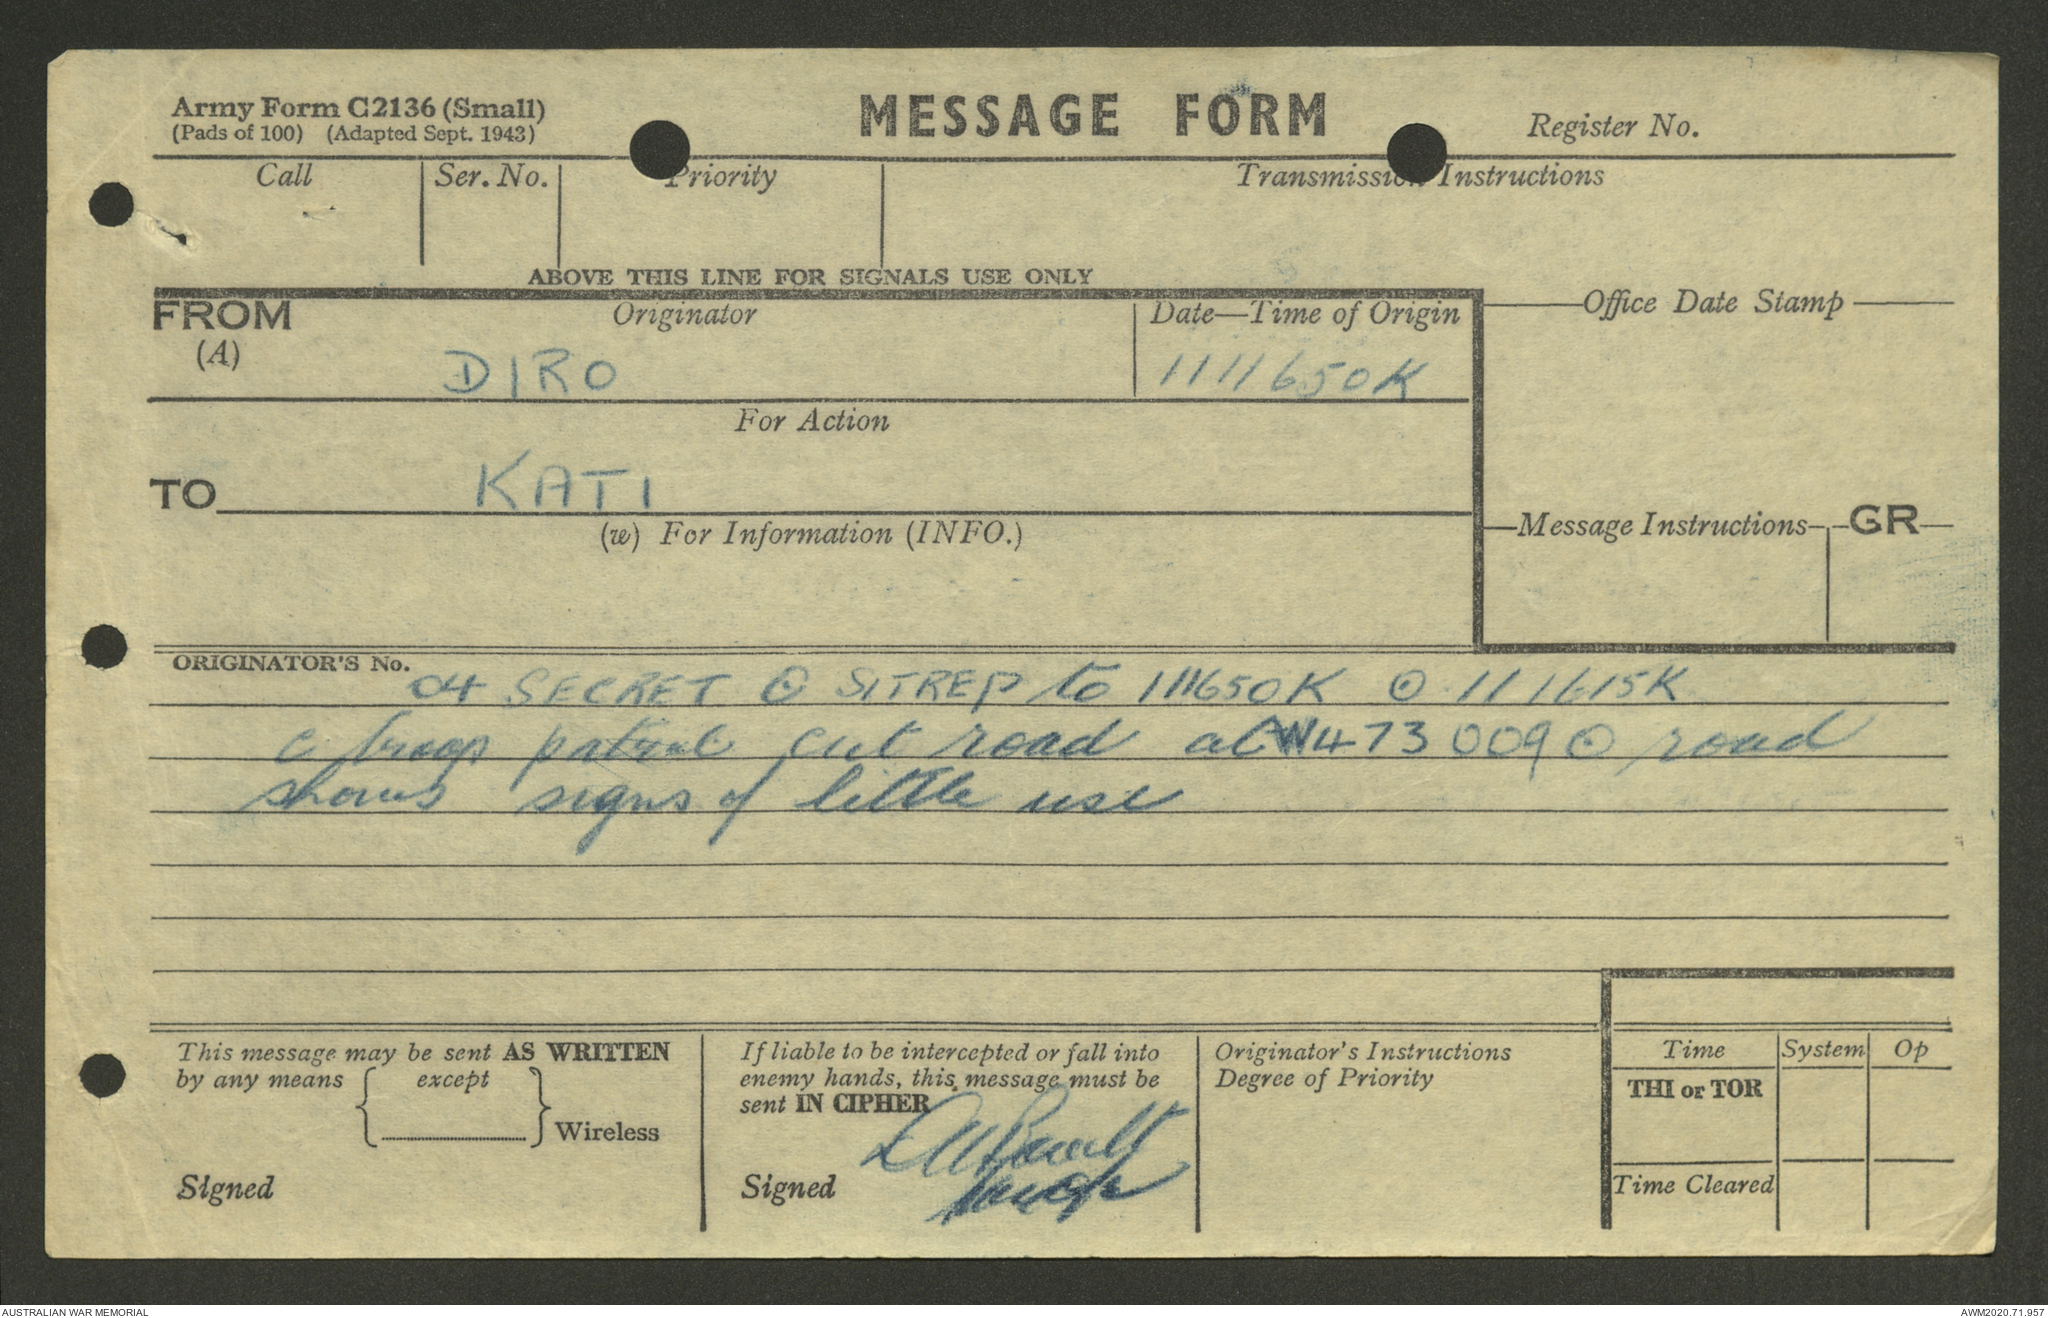 Army Form C2136 (Small)
(Pads of 100) (Adapted Sept. 1943)
MESSAGE FORM
Register No.
Call
Ser. No.
Priority
Transmission Instructions
ABOVE THIS LINE FOR SIGNALS USE ONLY
FROM
(A)
Originator
DIRO
Date—Time of Origin
1111650K
Office Date Stamp
For Action
TO
KATI
(w) For Information (INFO.)
Message Instructions
GR
ORIGINATOR'S No.
04 SECRET ⊙ SITREP to 111650K ⊙ 111615K
C troop patrol cut road at 473009 ⊙ road
shows signs of little use
This message may be sent AS WRITTEN
by any means except
Wireless
Signed
If liable to be intercepted or fall into
enemy hands, this message must be
sent IN CIPHER
Signed
Originator's Instructions
Degree of Priority
Time
System
Op
THI or TOR
Time Cleared
AUSTRALIAN WAR MEMORIAL
AWM2020.71.957